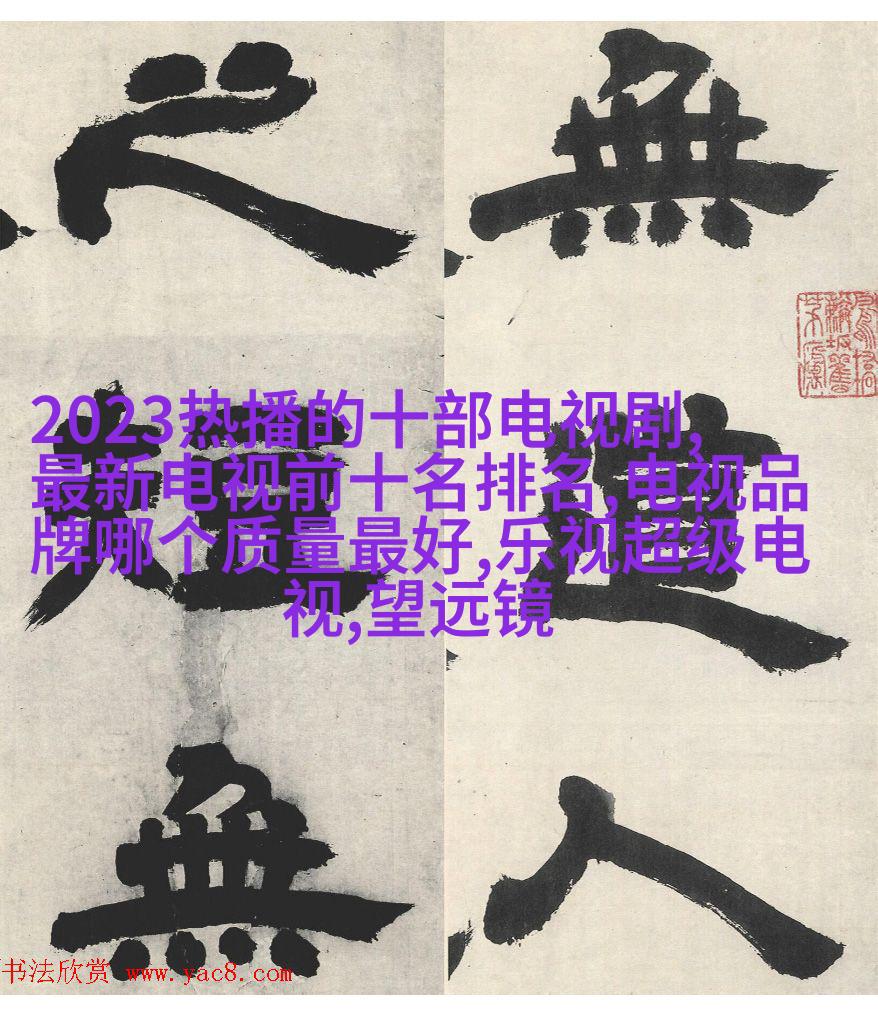 無道人
之短無
2023热播的十部电视剧,
最新电视前十名排名,电视品
牌哪个质量最好,乐视超级电
视,望远镜
书法欣赏 www.yac8.com